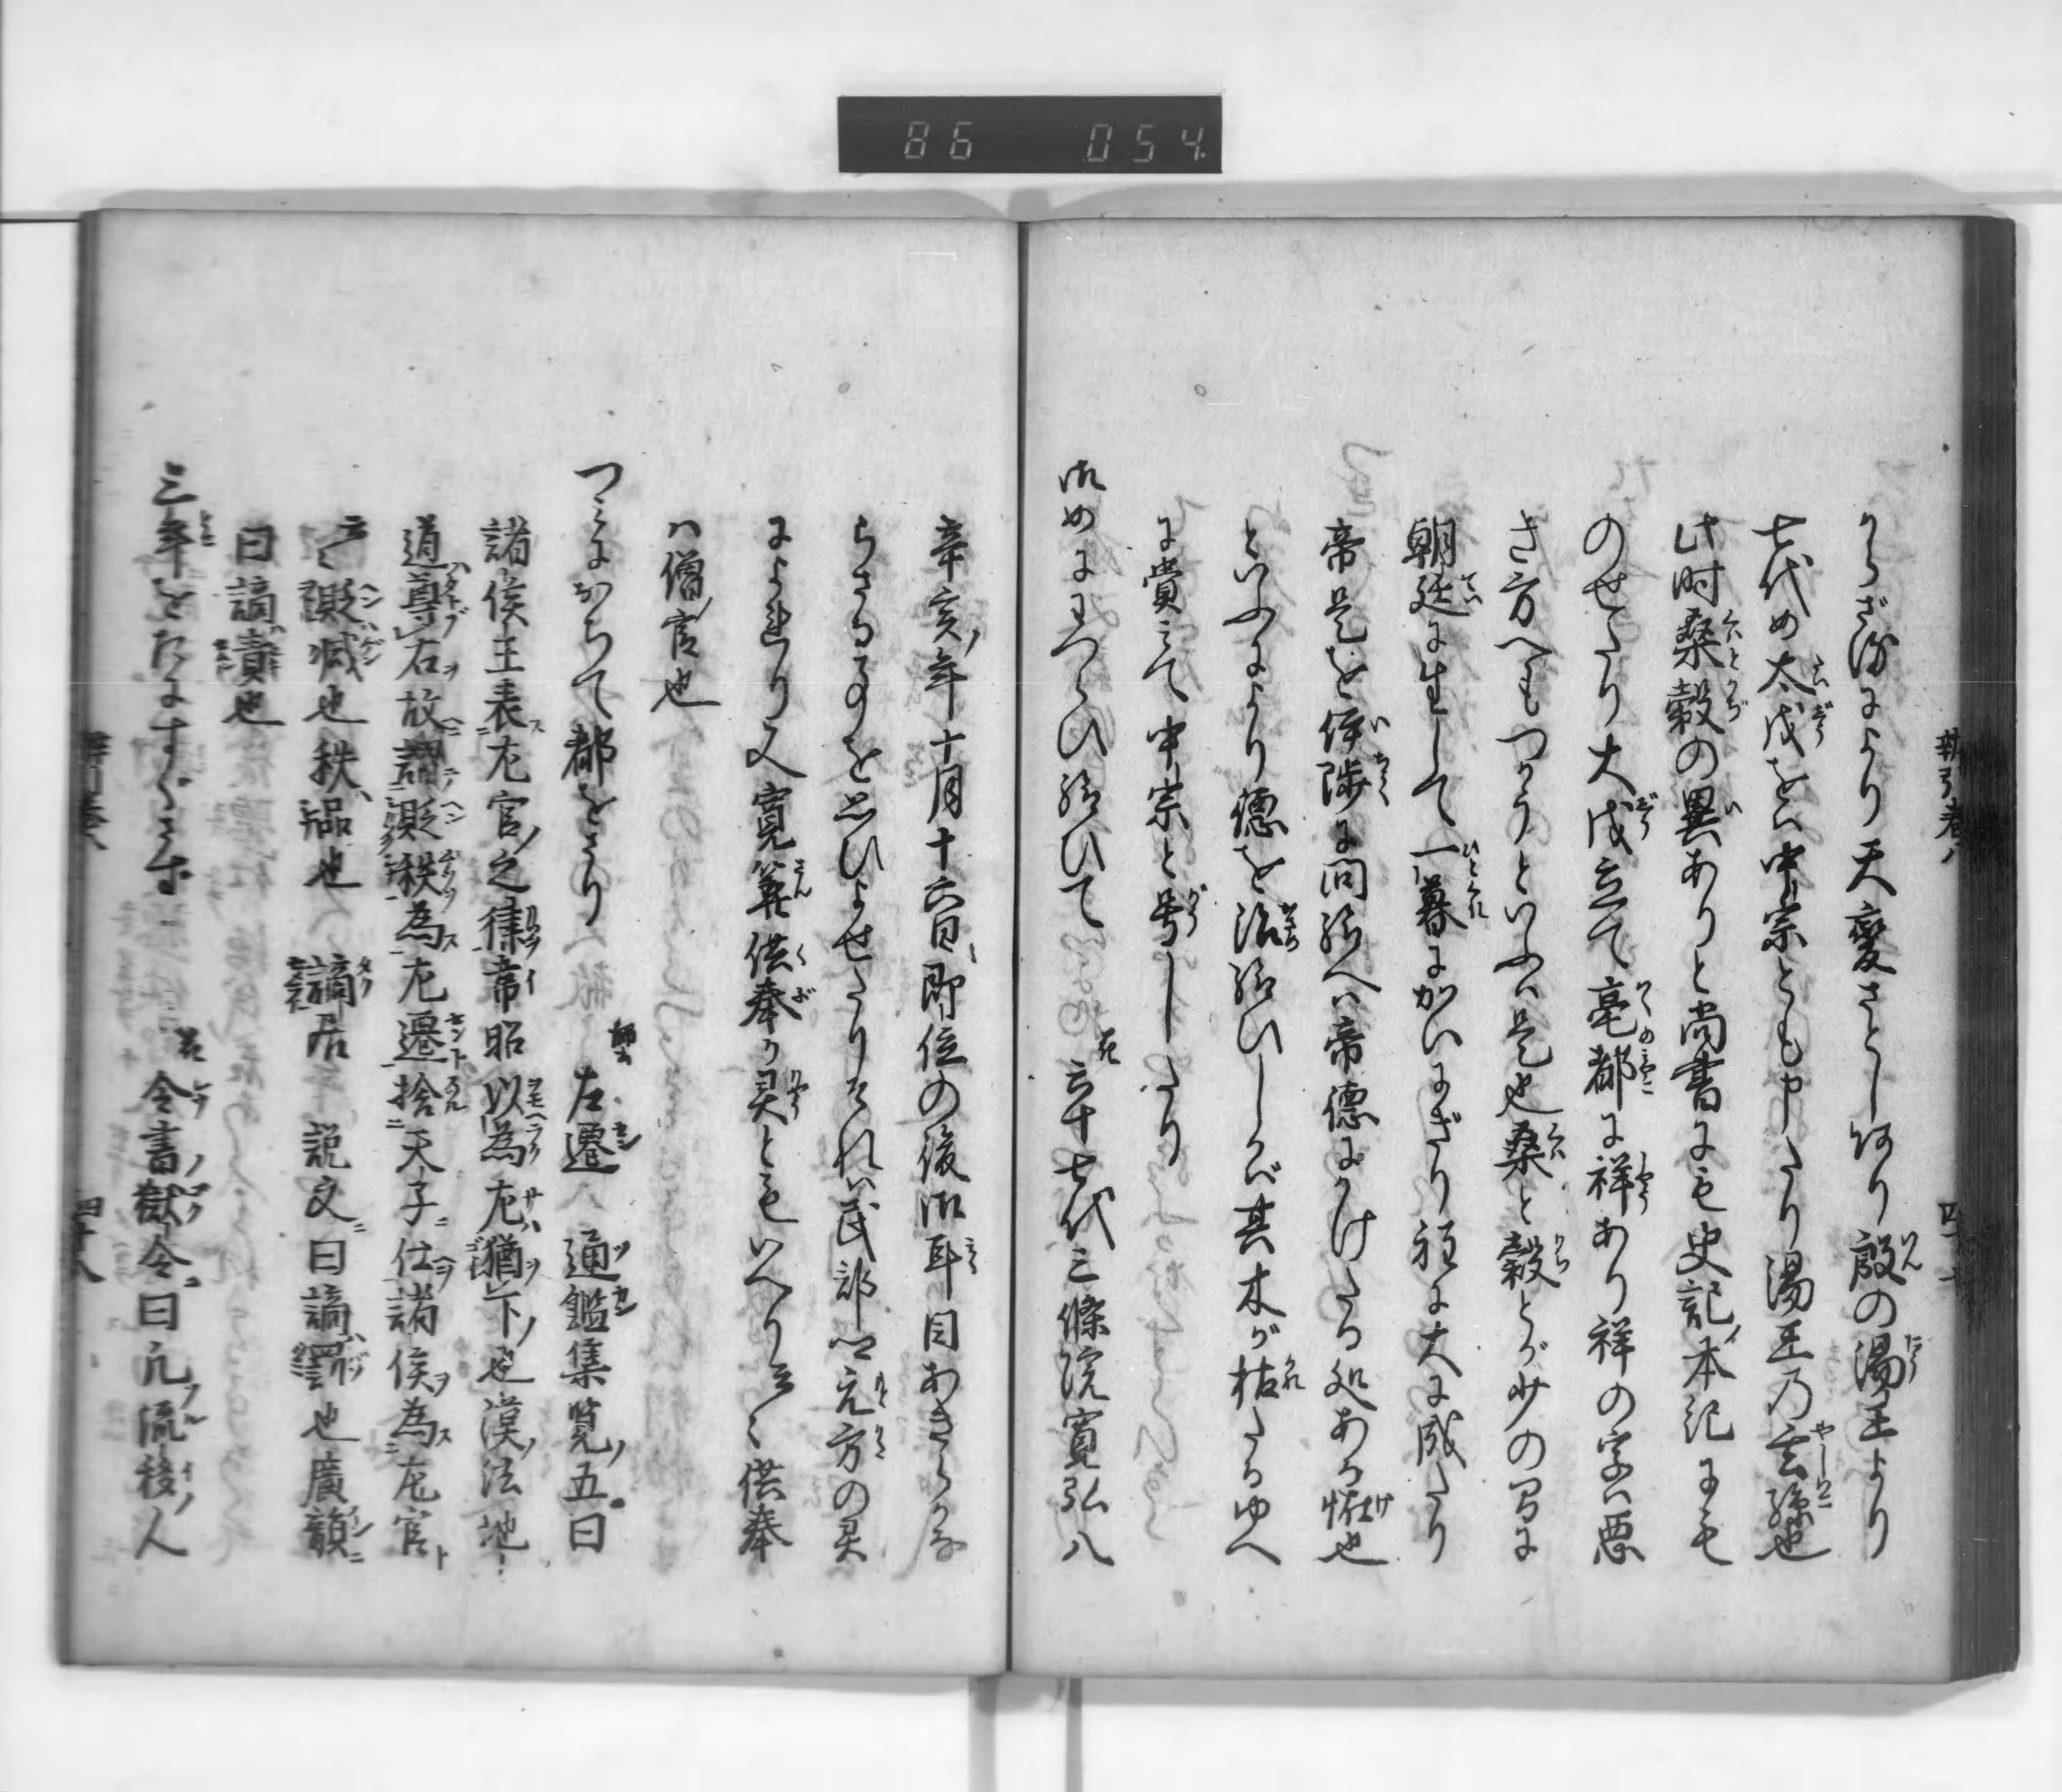 86 054
らざるによりて天変さとしあり殷の湯王より
七代め太戊をば中宗とも申たり湯王乃玄孫也
此时桑穀の異ありと尚書にも史記ノ本紀にも
のせたり大戊立て亳都に祥あり祥の字ハ悪
き方へもつかうといふハ是也桑と穀とが
朝廷に生して一暮にがいにぎり程に大に成たり
帝是を伊陟に問給へハ帝徳にかけたる処ある
といふにより徳を治給ひしかバ其木が枯たるゆへ
に貴みて中宗と号したり
御めにわつらひ給ひて 六十七代三條院寛弘八
辛亥ノ年十月十六日即位の後御耳目あきらかな
らさる事を思ひよせたりそれハ民部卿元方の灵
によれり又寛筭供奉カ灵ともいへり云々供奉
ハ僧ノ官也
つみにおちて都をさり 師云 左遷ハ通鑑集覧ノ五曰
諸侯王表左官之律韋昭以為左猶下也漢ノ法地
道尊右故謂貶秩為左遷捨天子仕諸侯為左官ト
云々貶減也秩品也 謫居 説文曰謫罰也廣韻
曰謫責也
三年をたにすくさす 花 令書獄令曰凡流移人
四十八